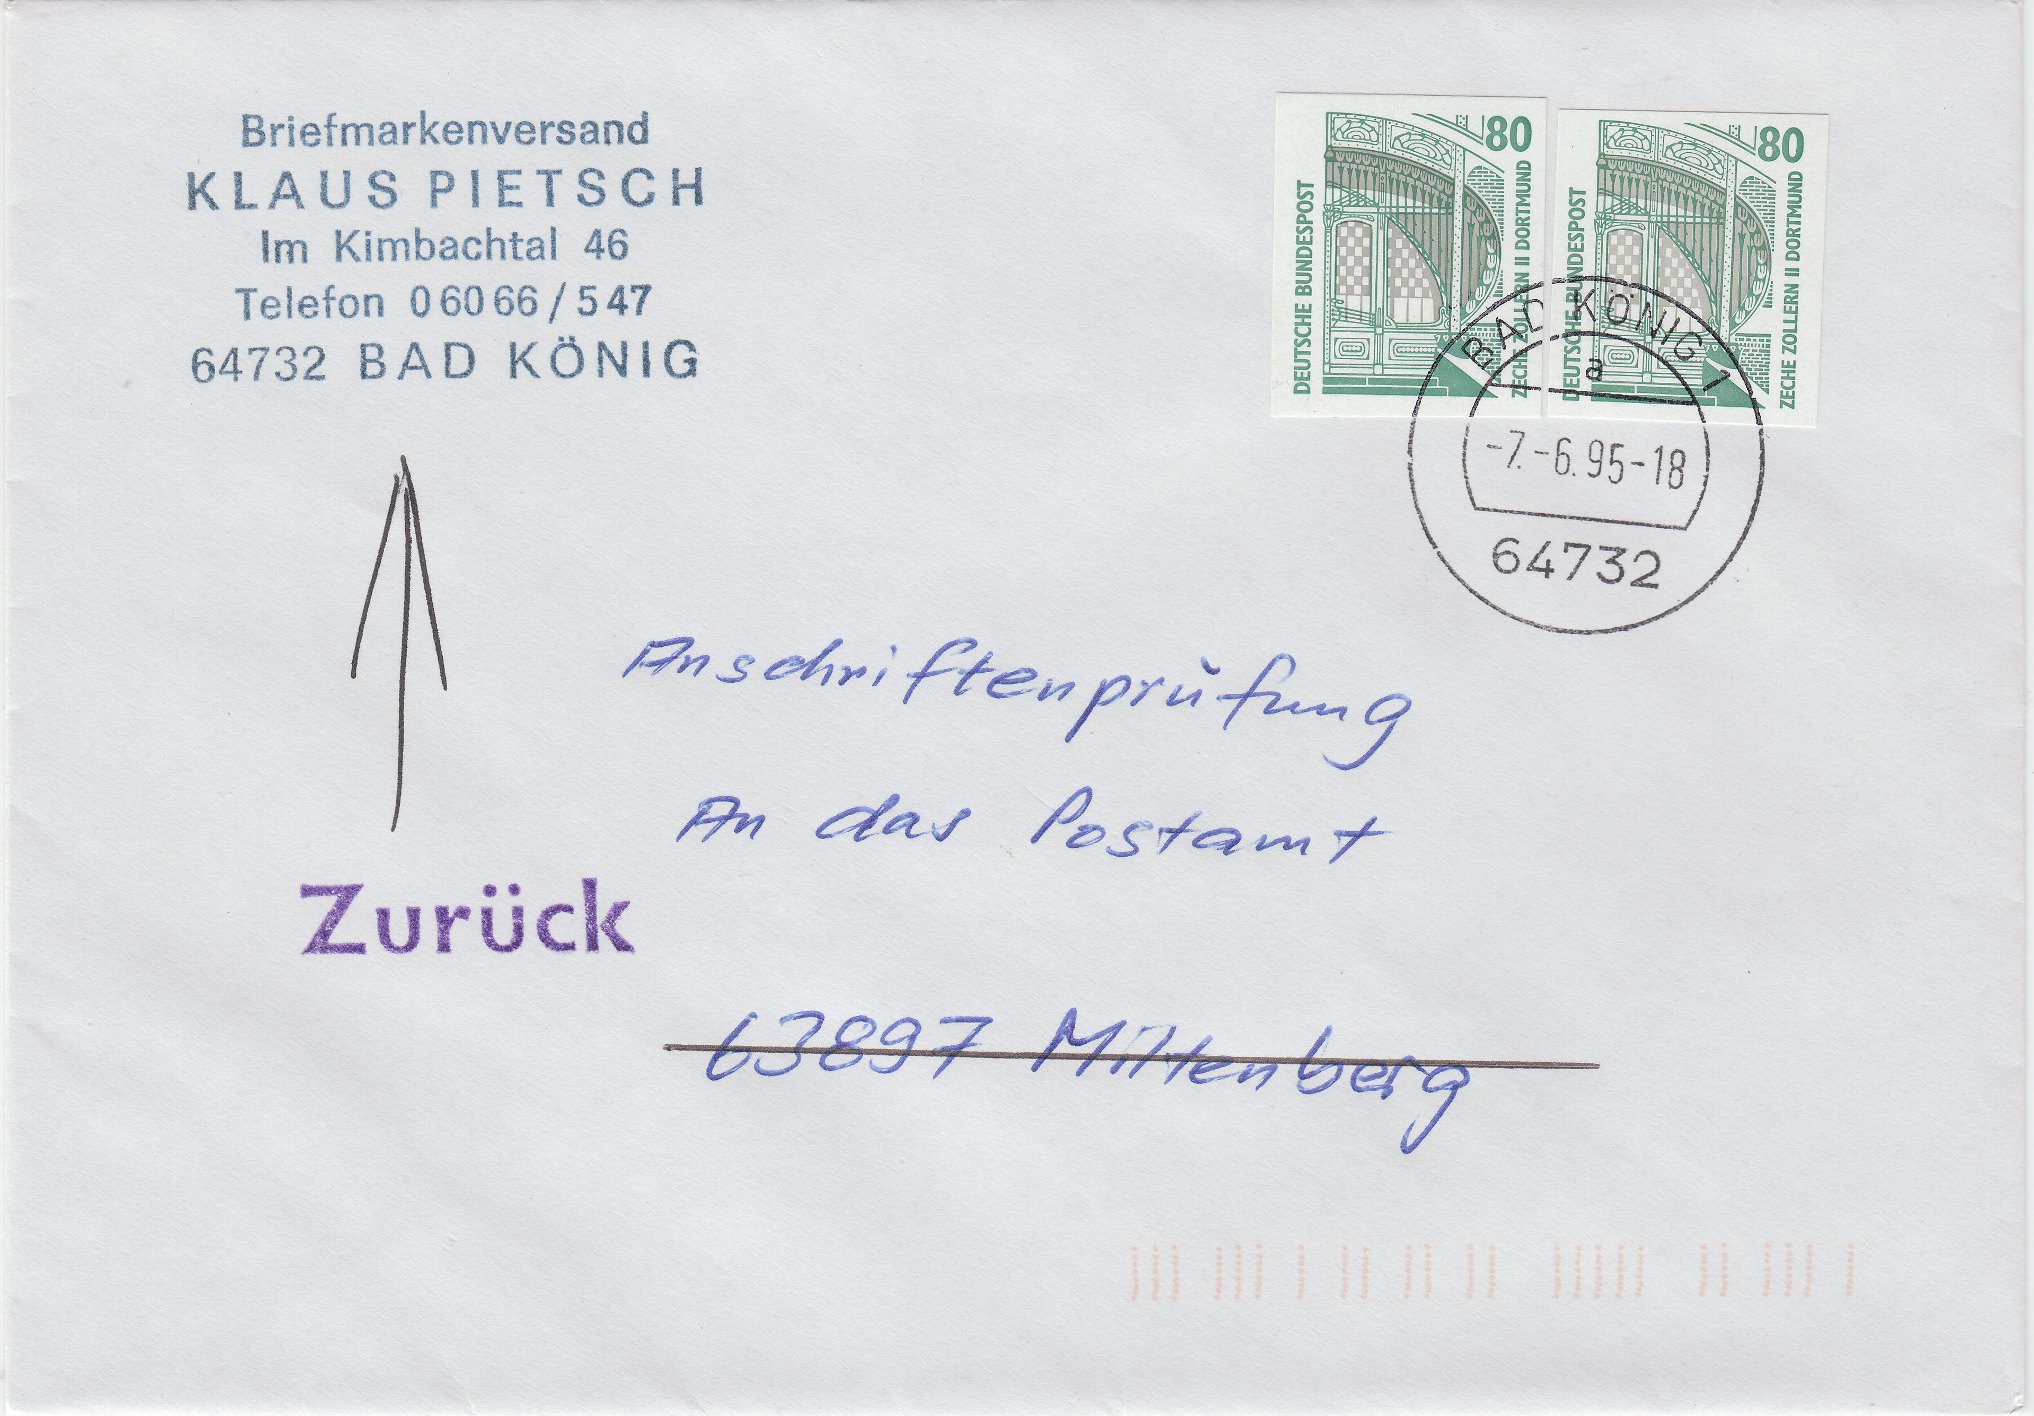 Briefmarkenversand
KLAUS PIETSCH
Im Kimbachtal 46
Telefon 06066/547
64732 BAD KÖNIG
80
DEUTSCHE BUNDESPOST
ZECHE ZOLLERN II DORTMUND
80
DEUTSCHE BUNDESPOST
ZECHE ZOLLERN II DORTMUND
BAD KÖNIG 1
a
-7.-6.95-18
64732
Anschriftenprüfung
An das Postamt
Zurück
63897 Miltenberg